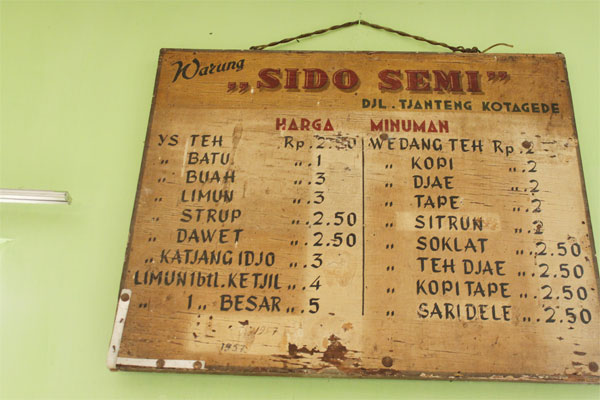 Warung
„SIDO SEMI”
DJL. TJANTENG KOTAGEDE
HARGA MINUMAN
YS TEH Rp. 2.50
„ BATU „. 1
„ BUAH „. 3
„ LIMUN „. 3
„ STRUP „. 2.50
„ DAWET „. 2.50
„ KATJANG IDJO „. 3
LIMUN 1 btl. KETJIL „. 4
„ 1 „ BESAR „. 5
WEDANG TEH Rp. 2
„ KOPI „. 2
„ DJAE „. 2
„ TAPE „. 2
„ SITRUN „. 2
„ SOKLAT „. 2.50
„ TEH DJAE „. 2.50
„ KOPI TAPE „. 2.50
„ SARIDELE „. 2.50
1957